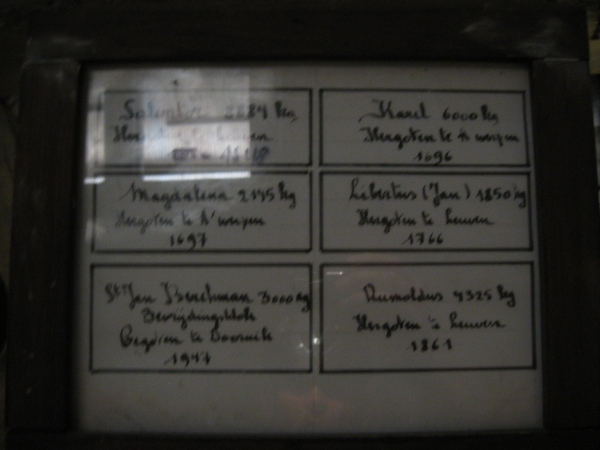 Salvator 8884 kg
Hergoten te Leuven
Karel 6000 kg
Hergoten te A'werpen
1696
Magdalena 2145 kg
Hergoten te A'werpen
1697
Libertus (Jan) 1850 kg
Hergoten te Leuven
1766
St Jan Berchman 3000 kg
Bevrijdingsklok
Gegoten te Doornik
1947
Rumoldus 4325 kg
Hergoten te Leuven
1861